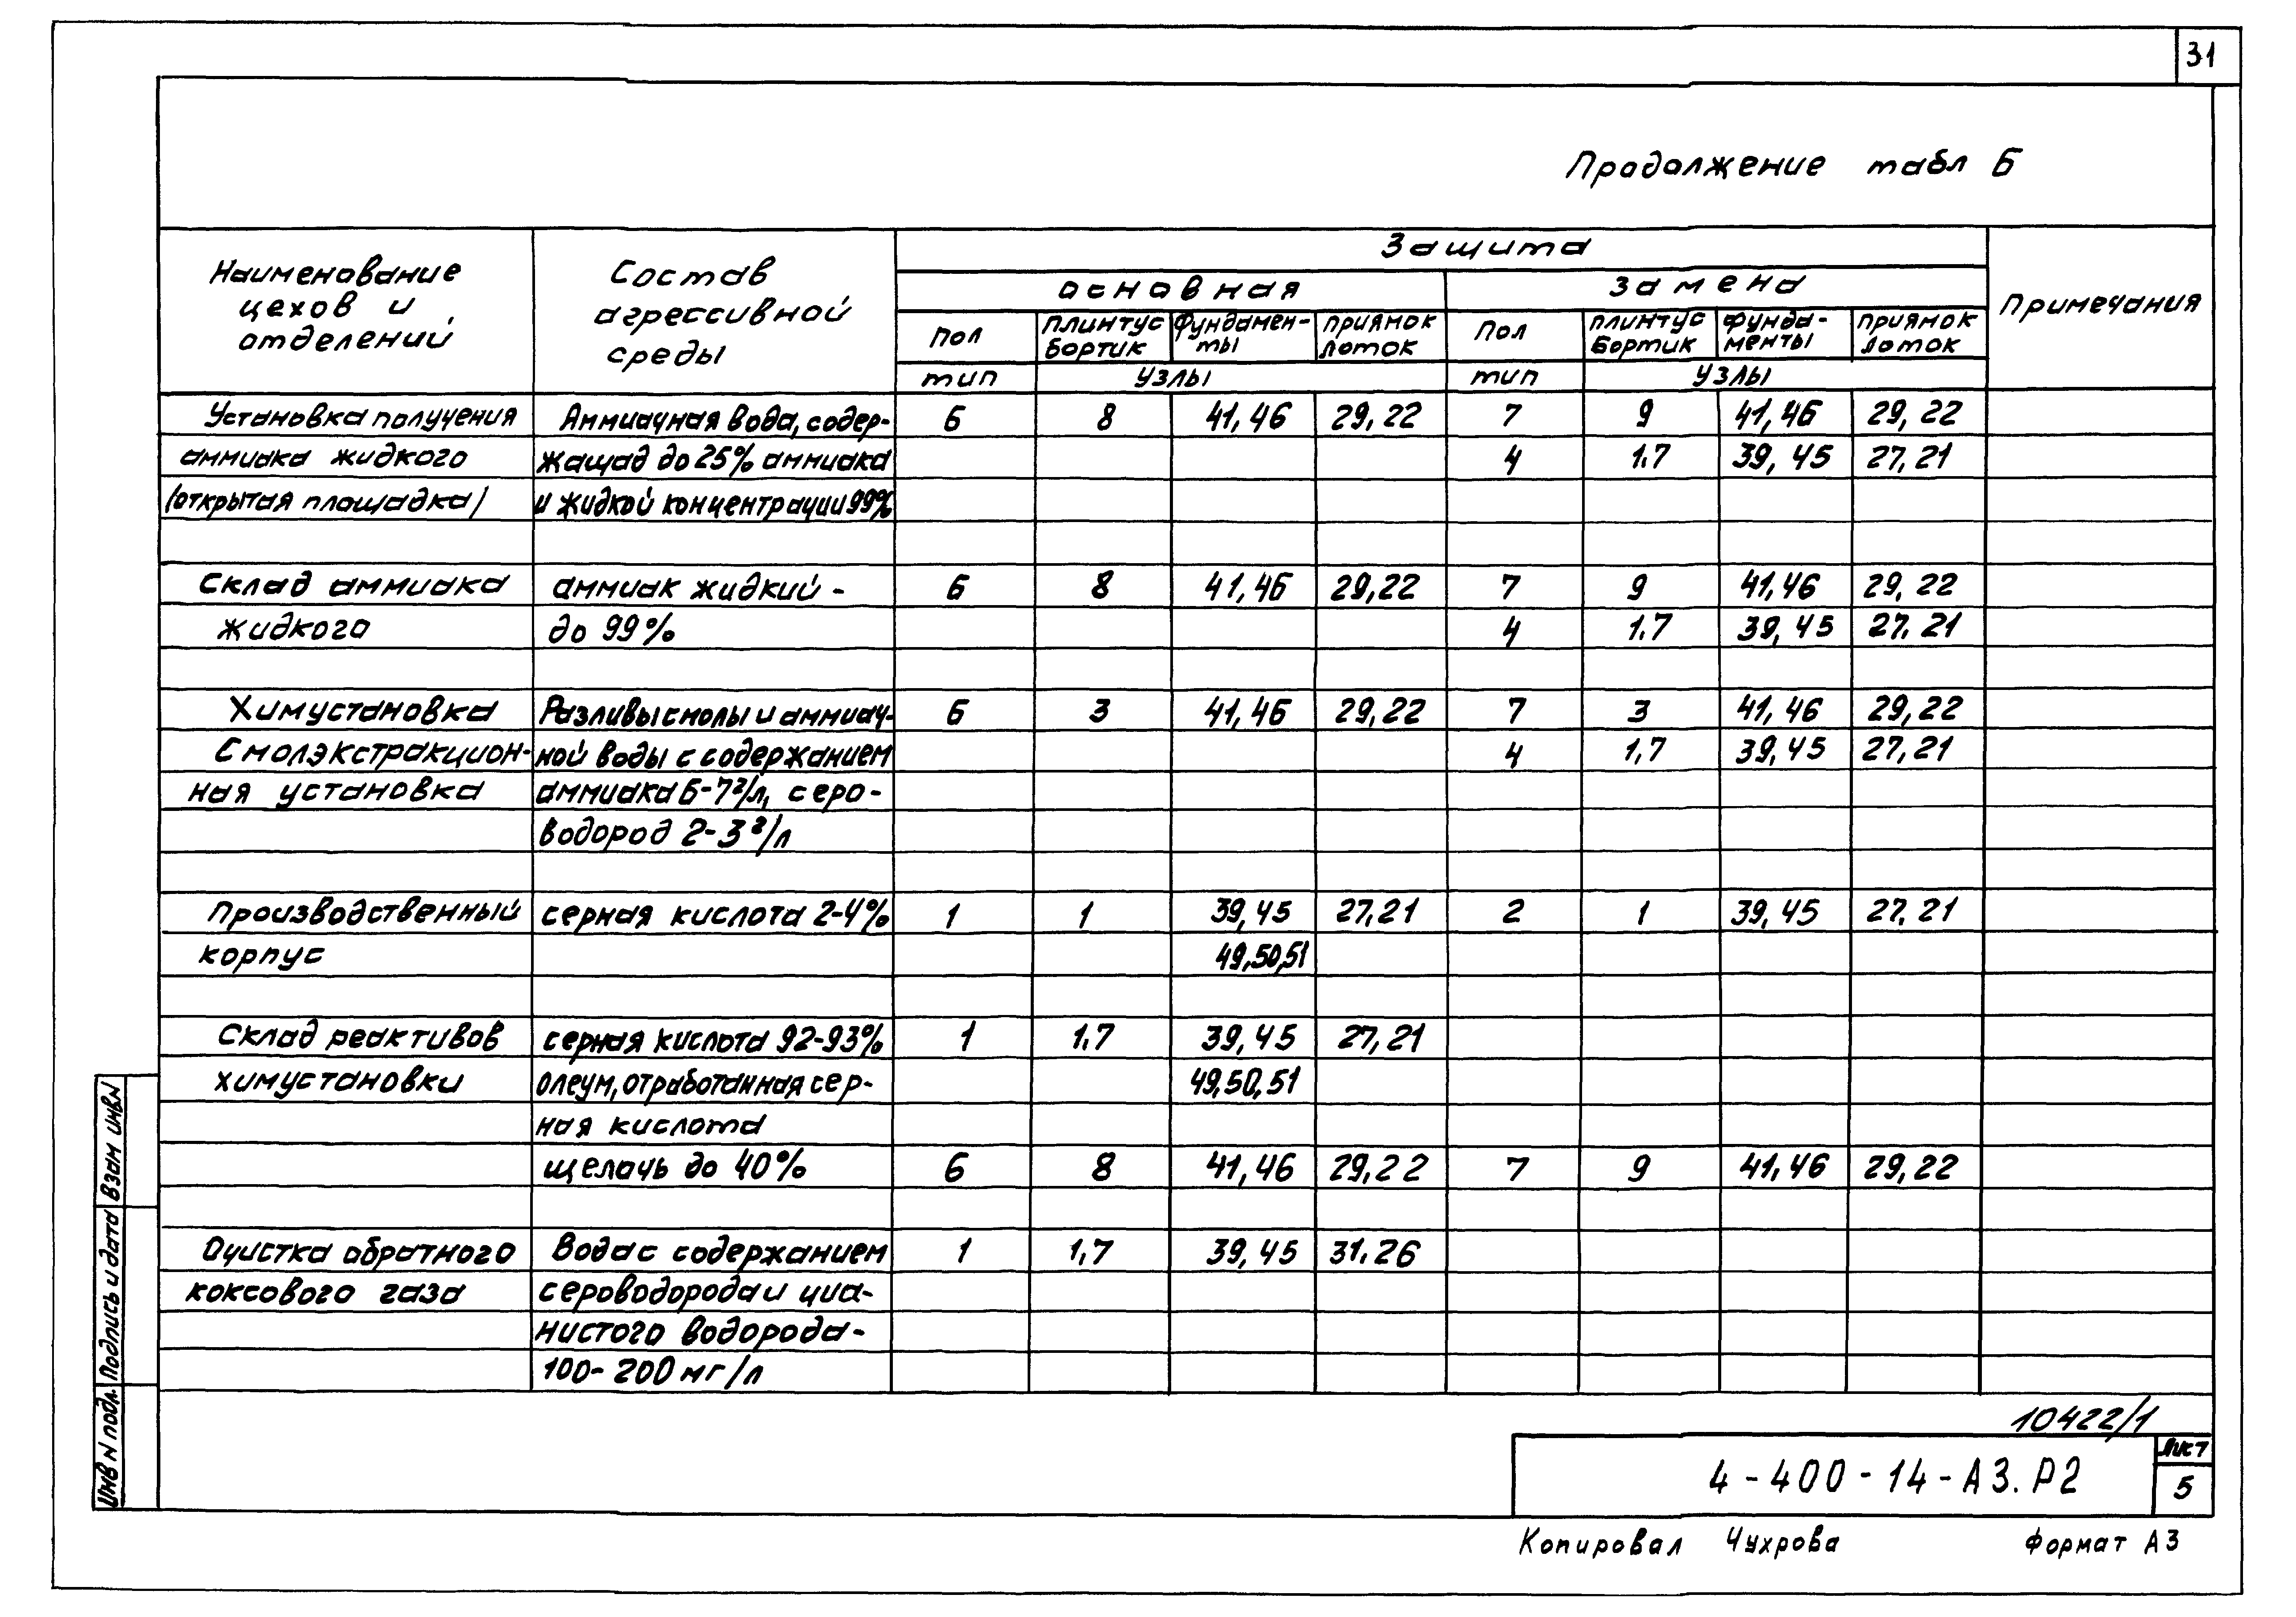 31
Продолжение табл Б
Наименование цехов и отделений
Состав агрессивной среды
Защита
Примечания
основная
замена
пол
плинтус бортик
фундамен-ты
приямок лоток
пол
плинтус бортик
фунда-менты
приямок лоток
тип
узлы
тип
узлы
Установка получения Аммиачная вода, содер- 6 8 41,46 29,22 7 9 41,46 29,22
аммиака жидкого жащад до 25% аммиака 4 1.7 39,45 27,21
(открытая площадка) и жидкой концентрации 99%
Склад аммиака аммиак жидкий - 6 8 41,46 29,22 7 9 41,46 29,22
жидкого до 99% 4 1.7 39,45 27.21
Химустановка Разливы смолы и аммиач- 6 3 41,46 29,22 7 3 41,46 29,22
Смолэкстракцион- ной воды с содержанием 4 1,7 39,45 27,21
ная установка аммиака 6-7 г/л, серо-
водород 2-3 г/л
Производственный серная кислота 2-4% 1 1 39,45 27,21 2 1 39,45 27.21
корпус 49,50,51
Склад реактивов серная кислота 92-93% 1 1.7 39,45 27,21
химустановки олеум, отработанная сер- 49,50,51
ная кислота
щелачь до 40% 6 8 41,46 29,22 7 9 41,46 29,22
Очистка обратного Вода с содержанием 1 1,7 39,45 31.26
коксового газа сероводорода и циа-
нистого водорода-
100-200 мг/л
Взам инв N
Подпись и дата
Инв N подл.
10422/1
4-400-14-АЗ.Р2
Лист
5
Копировал Чухрова Формат А3